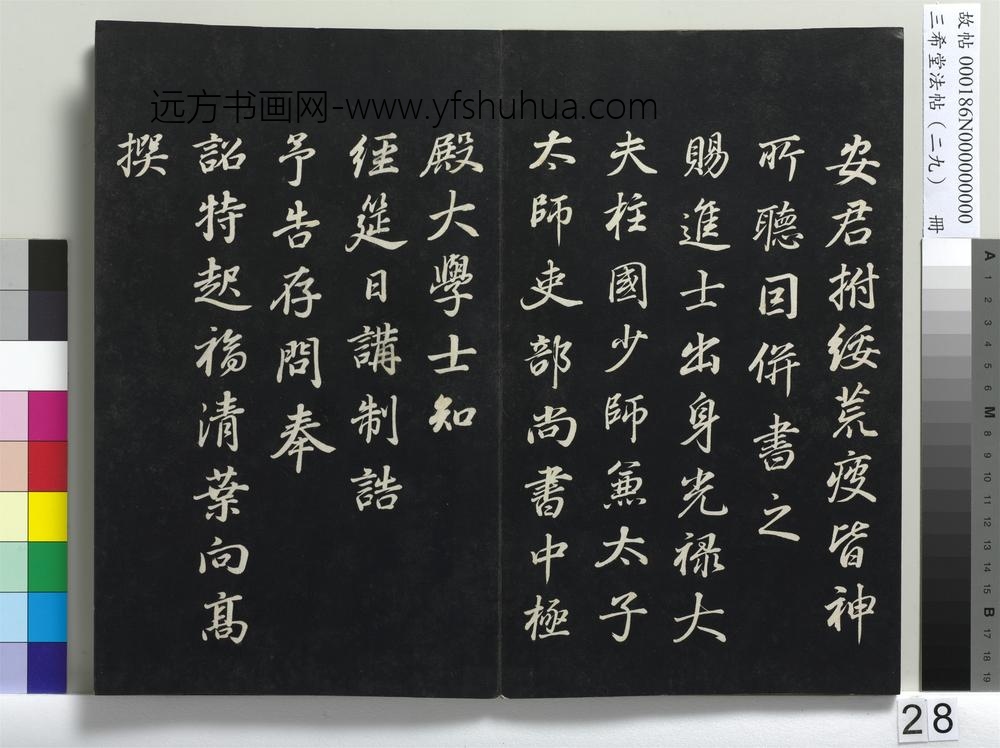 安君拊綏荒瘦皆神
所聽囙併書之
賜進士出身光禄大
夫柱國少師兼太子
太師吏部尚書中極
殿大學士知
經筵日講制誥
予告存問奉
詔特起福清葉向髙
撰
远方书画网-www.yfshuhua.com
故帖 000186N000000000
三希堂法帖（二九） 冊
A 1 2 3 4 5 6 M 8 9 10 11 12 13 14 15 B 17 18 19
28